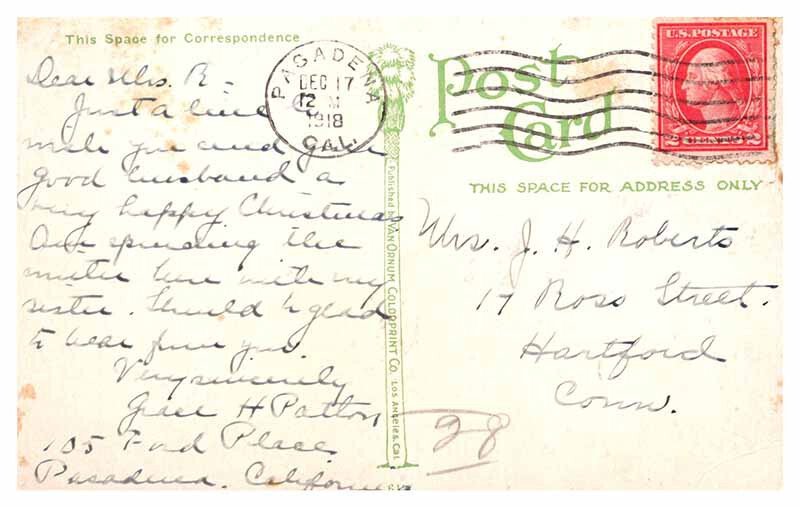 This Space for Correspondence
Dear Mrs. R—
Just a line to
wish you and your
good husband a
very happy Christmas
Am spending the
winter here with my
sister. Should be glad
to hear from you.
Very sincerely
Grace H Patton
105 Ford Place
Pasadena. California
PASADENA
DEC 17
12 M
1918
CAL.
Published by VAN ORNUM COLORPRINT CO. LOS ANGELES, CAL.
Post
Card
U.S. POSTAGE
2 CENTS 2
THIS SPACE FOR ADDRESS ONLY
Mrs. J. H. Roberts
17 Ross Street.
Hartford
Conn.
28